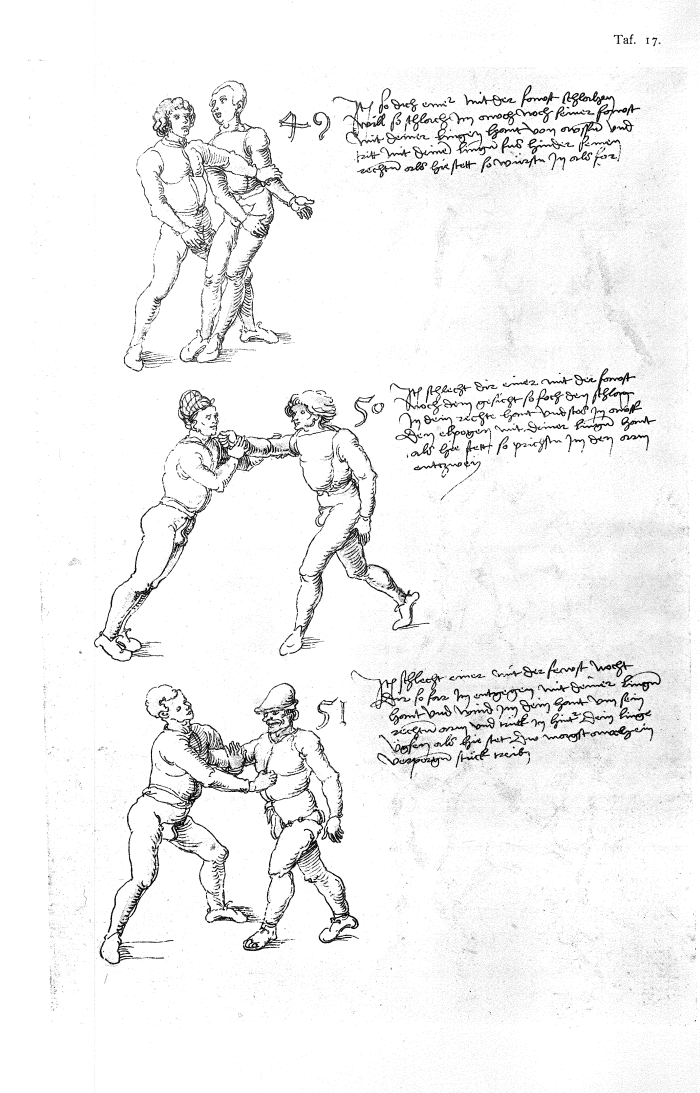 Taf. 17.
49
Itm so dich einer mit der fawst schlahen
will so schlach Im auch nach seiner fawst
mit deiner lingen hant von aussen und
tritt mit deinem lingen fus hinder seinen
rechten als hie stett so würfstu In als for
50
Itm schlecht dir einer mit der fawst
nach dem gesicht so fach den schlag
In dein rechte hant und stos In auff
den elpogen mit deiner lingen hant
als hie stett so prichstu Im den arm
entzwey
51
Itm schlecht einer mit der fawst nach
dir so far Im entgegen mit deiner lingen
hant und wind Im dein hant um sein
rechten arm und ruck In hinder dein linge
als hie stet du magst auch ein
verporgen stück treiben